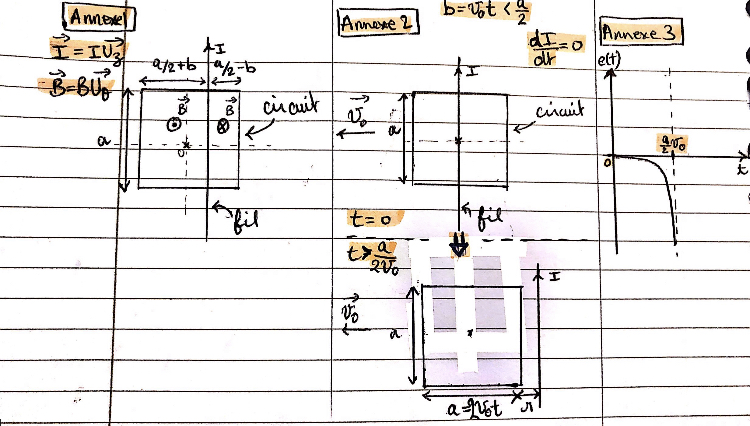 Annexe 1
I⃗ = I U⃗z
B⃗ = B U⃗θ
I
a/2+b
a/2-b
B⃗
B⃗
circuit
a
O
fil
Annexe 2
b = v₀t < a/2
dI/dt = 0
I
v⃗₀
a
circuit
fil
t = 0
t > a/2v₀
I
v⃗₀
a
a = 2v₀t
r
Annexe 3
e(t)
0
a/2 v₀
t